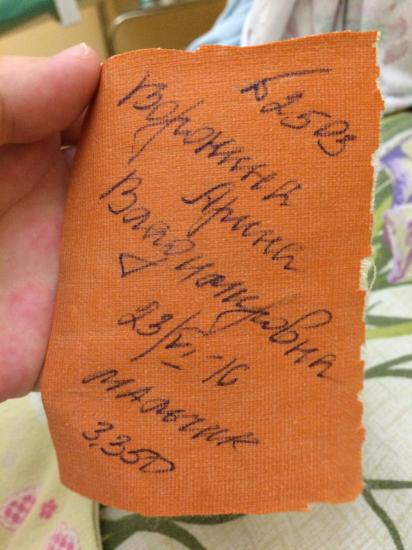 Б2503
Воронина
Ярина
Владимировна
23/VI-16
мальчик
3.350